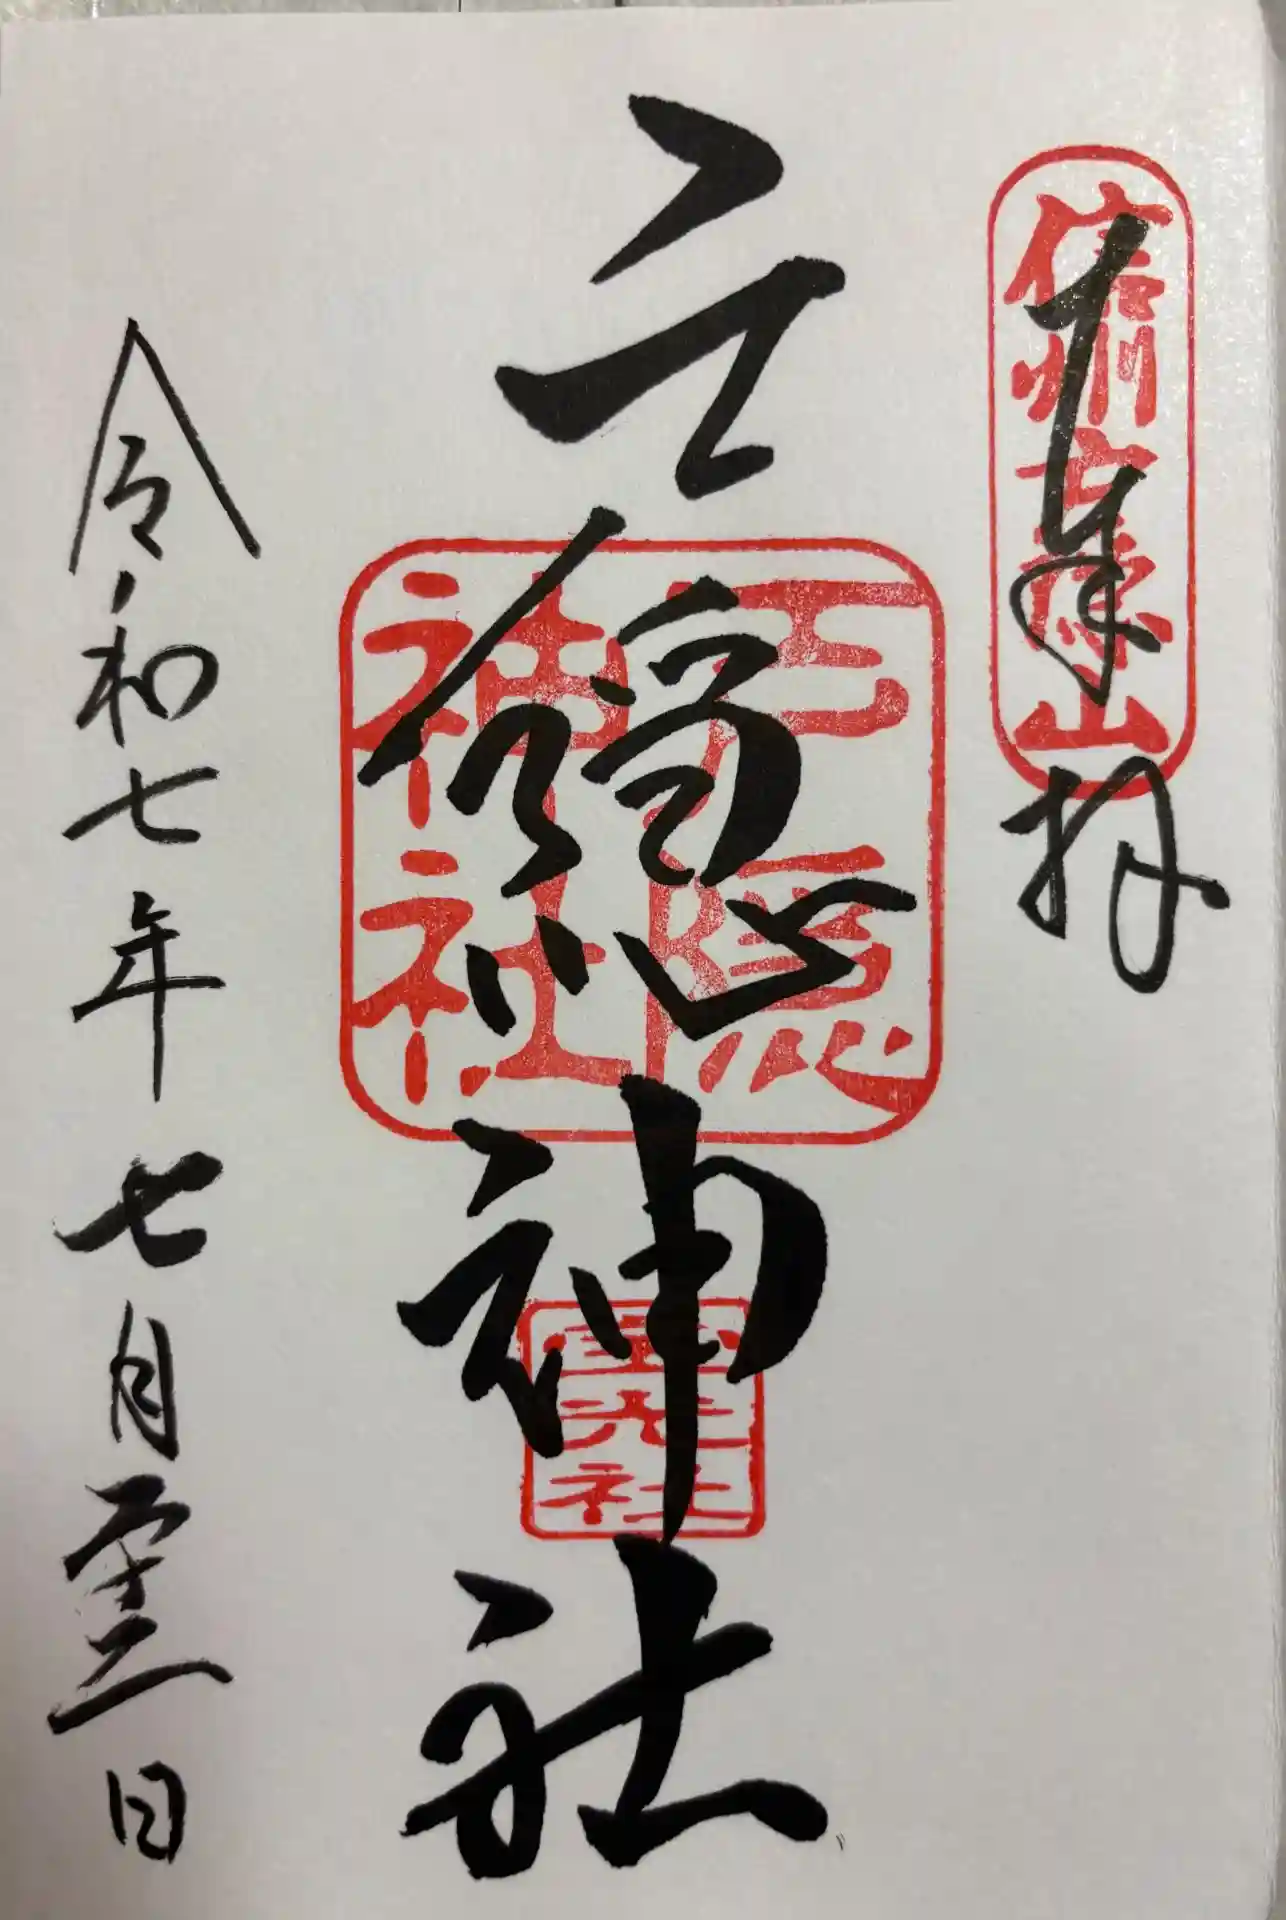 信州戸隠山
奉拝
戸隠神社
戸隠神社
宝光社
令和七年七月二十三日